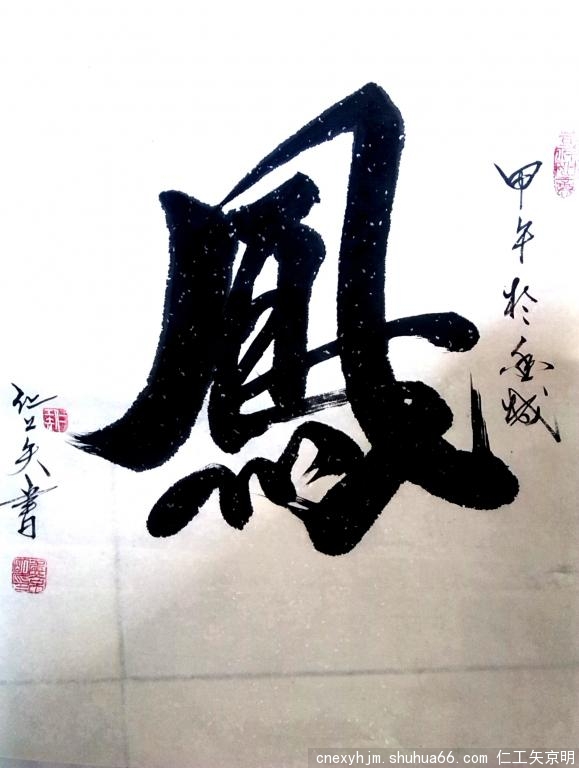 甲午於金城
鳳
仁工矢書
cnexyhjm.shuhua66.com 仁工矢京明